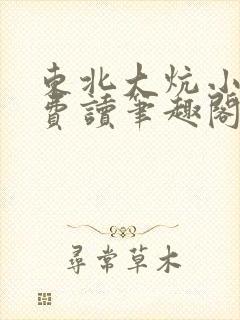 東北大炕小
費讀筆趣閣
尋常草木